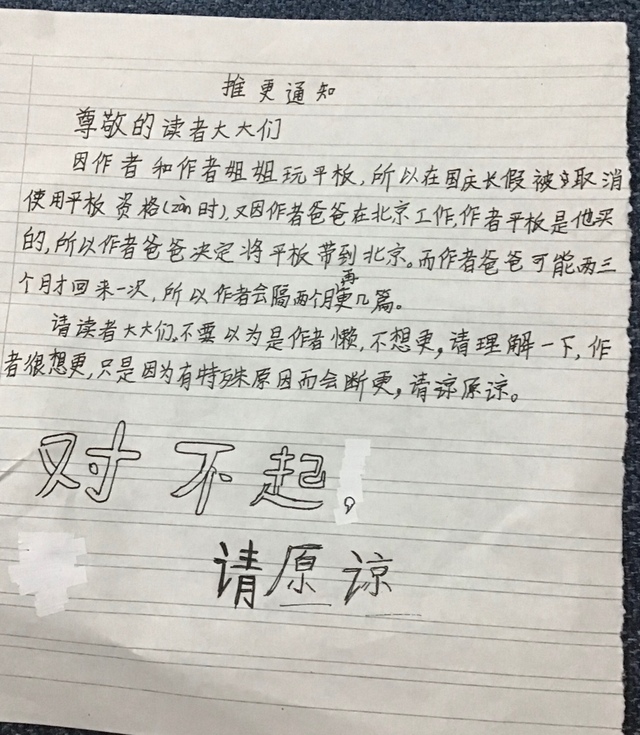 推更通知
尊敬的读者大大们
因作者和作者姐姐玩平板,所以在国庆长假被取消
使用平板资格(zàn时),又因作者爸爸在北京工作,作者平板是他买
的,所以作者爸爸决定将平板带到北京。而作者爸爸可能两三
个月才回来一次,所以作者会隔两个月再更几篇。
请读者大大们,不要以为是作者懒,不想更,请理解一下,作
者很想更,只是因为有特殊原因而会断更,请谅原谅。
对不起,
请原谅